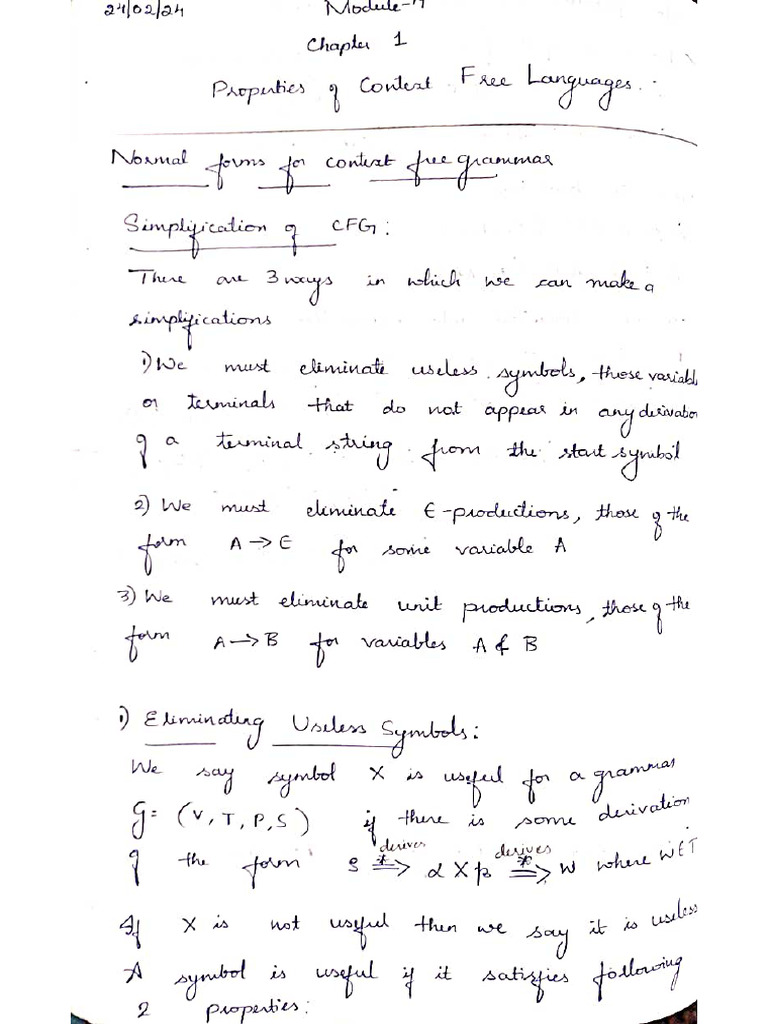 24/02/24
Module-4
Chapter 1
Properties of Context Free Languages.
Normal forms for context free grammar
Simplification of CFG:
There are 3 ways in which we can make a
simplifications
1) We must eliminate useless symbols, those variabl
or terminals that do not appear in any derivation
of a terminal string from the start symbol
2) We must eliminate ε-productions, those of the
form A → ε for some variable A
3) We must eliminate unit productions, those of the
form A → B for variables A & B
1) Eliminating Useless Symbols:
We say symbol X is useful for a grammar
G = (V, T, P, S) if there is some derivation
derives derives
of the form S *⇒ α X β *⇒ W where WET
If X is not useful then we say it is useless
A symbol is useful if it satisfies following
2 properties: